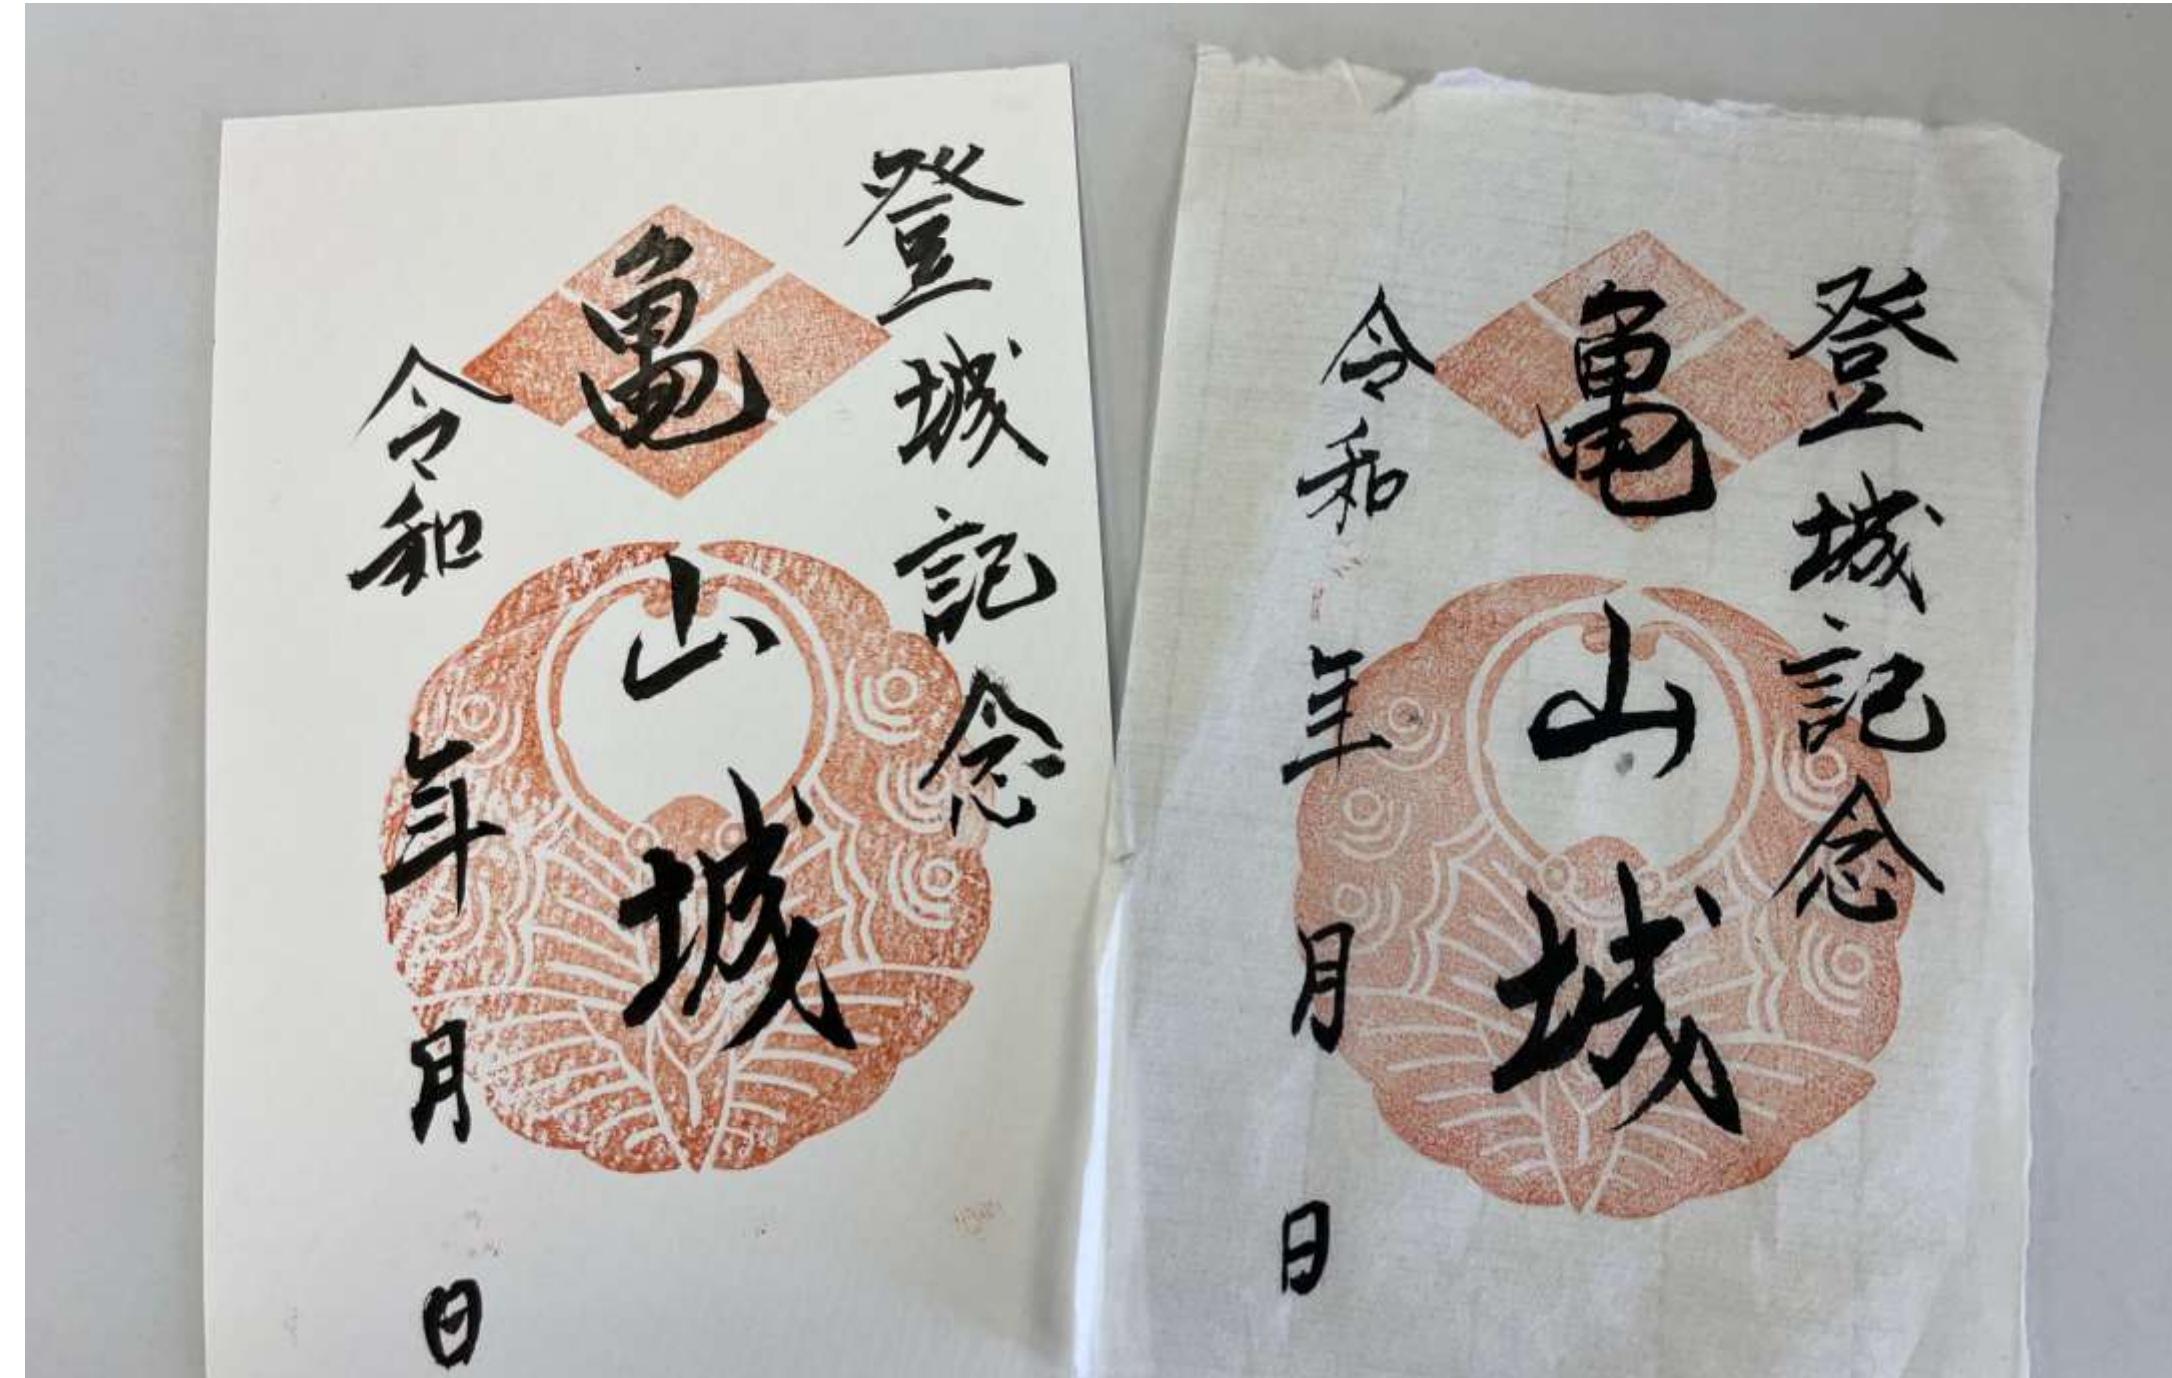 登城記念
亀山城
令和 年 月 日
登城記念
亀山城
令和 年 月 日